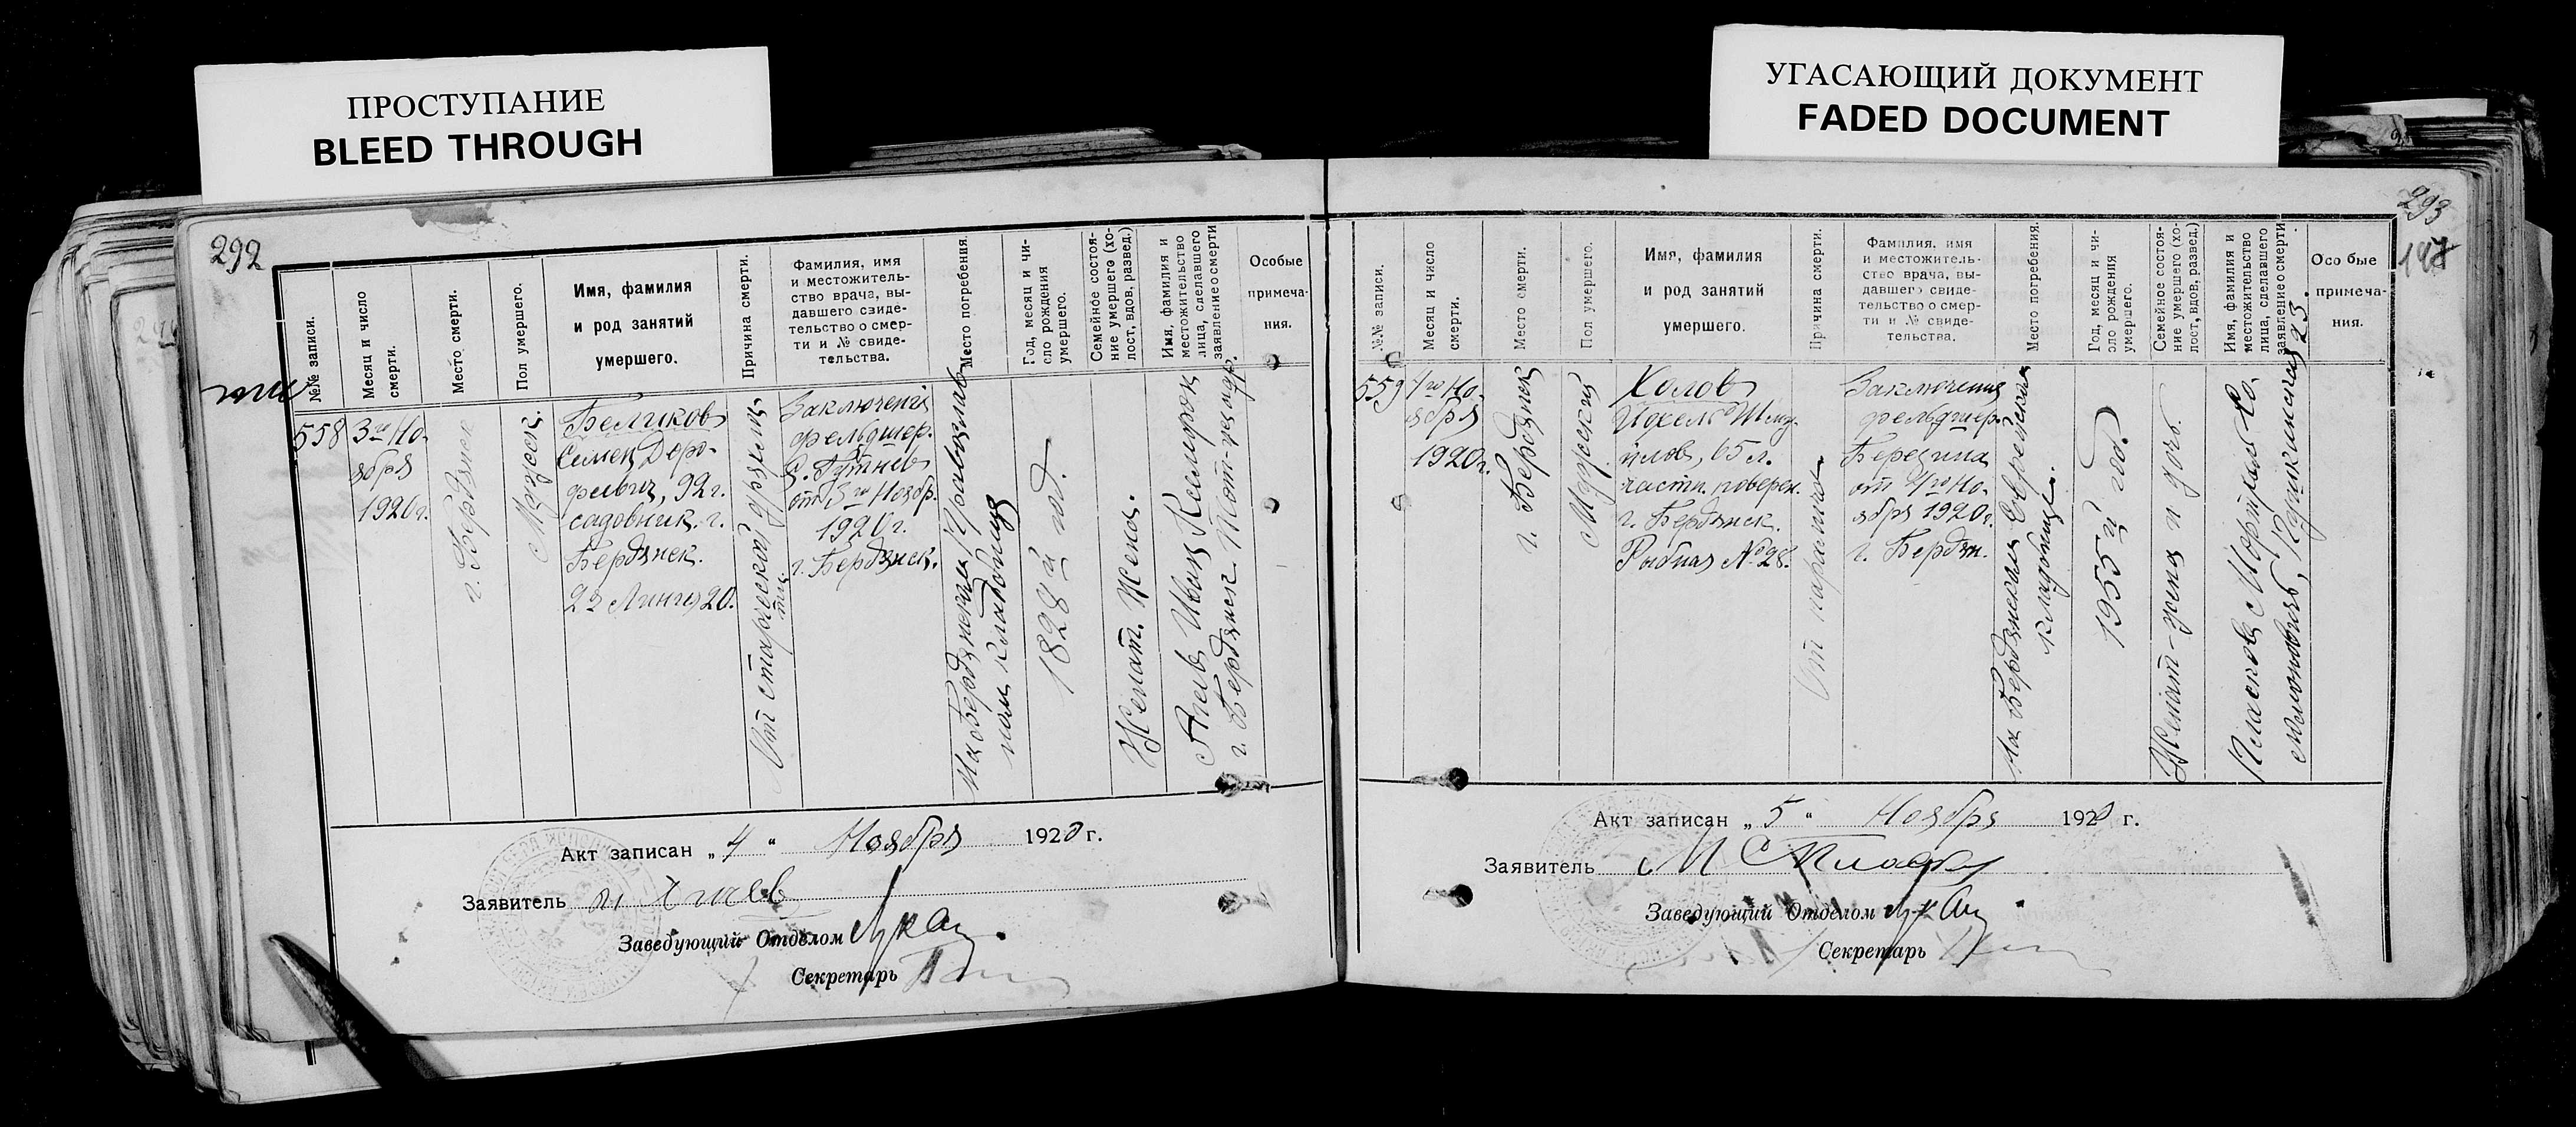 ПРОСТУПАНИЕ
BLEED THROUGH
УГАСАЮЩИЙ ДОКУМЕНТ
FADED DOCUMENT
292
№№ записи.
Месяц и число
смерти.
Место смерти.
Пол умершего.
Имя, фамилия
и род занятий
умершего.
Причина смерти.
Фамилия, имя
и местожитель-
ство врача, вы-
давшего свиде-
тельство о смер-
ти и № свиде-
тельства.
Место погребения.
Год, месяц и чи-
сло рождения
умершего.
Семейное состоя-
ние умершего (хо-
лост, вдов, развед.)
Имя, фамилия и
местожительство
лица, сделавшего
заявление о смерти
Особые
примеча-
ния.
558
3го Но-
ября
1920г.
г. Бердянск
Мужеск.
Беликов
Семен Доро-
феевич, 92 г.
садовник. г.
Бердянск.
22 Линия 20.
От старческой дряхлос
ти.
Заключения
фельдшер.
от 3го Ноябр.
1920 г.
г. Бердянск.
На Бердянском Православ
ном кладбище
1828й год.
Женат. Жена.
Иван
г. Бердянск.
Акт записан „ 4 " Ноября 1920 г.
Заявитель
Заведующий Отделом
Секретарь
293
№№ записи.
Месяц и число
смерти.
Место смерти.
Пол умершего.
Имя, фамилия
и род занятий
умершего.
Причина смерти.
Фамилия, имя
и местожитель-
ство врача, вы-
давшего свиде-
тельство о смер-
ти и № свиде-
тельства.
Место погребения.
Год, месяц и чи-
сло рождения
умершего.
Семейное состоя-
ние умершего (хо-
лост, вдов, развед.)
Имя, фамилия и
местожительство
лица, сделавшего
заявление о смерти
Особые
примеча-
ния.
559
4го Но-
ября
1920г.
г. Бердянск
Мужский
Холов
65 л.
частн. поверен.
г. Бердянск.
Рыбная № 28.
От паралича
Заключения
фельдшер.
Березина
от 4го Но-
ября 1920г.
г. Бердян.
На Бердянском Еврейском
кладбище.
1955й год.
Женат - жена и дочь.
23.
Акт записан „ 5 " Ноября 1920 г.
Заявитель
Заведующий Отделом
Секретарь